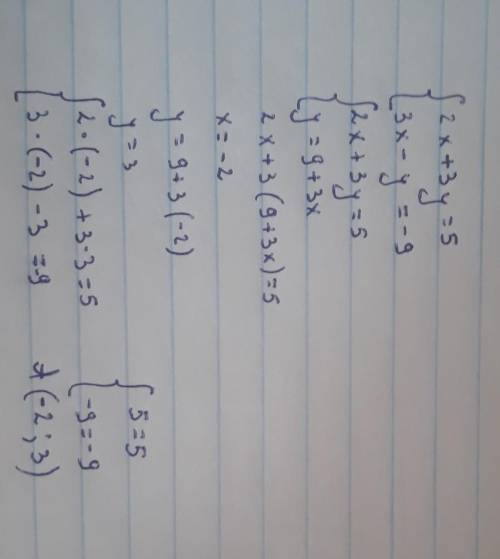 { 2x + 3y = 5
{ 3x - y = -9
{ 2x + 3y = 5
{ y = 9 + 3x
2x + 3(9 + 3x) = 5
x = -2
y = 9 + 3(-2)
y = 3
{ 2 · (-2) + 3 · 3 = 5
{ 3 · (-2) - 3 = -9
{ 5 = 5
{ -9 = -9
(-2 ; 3)